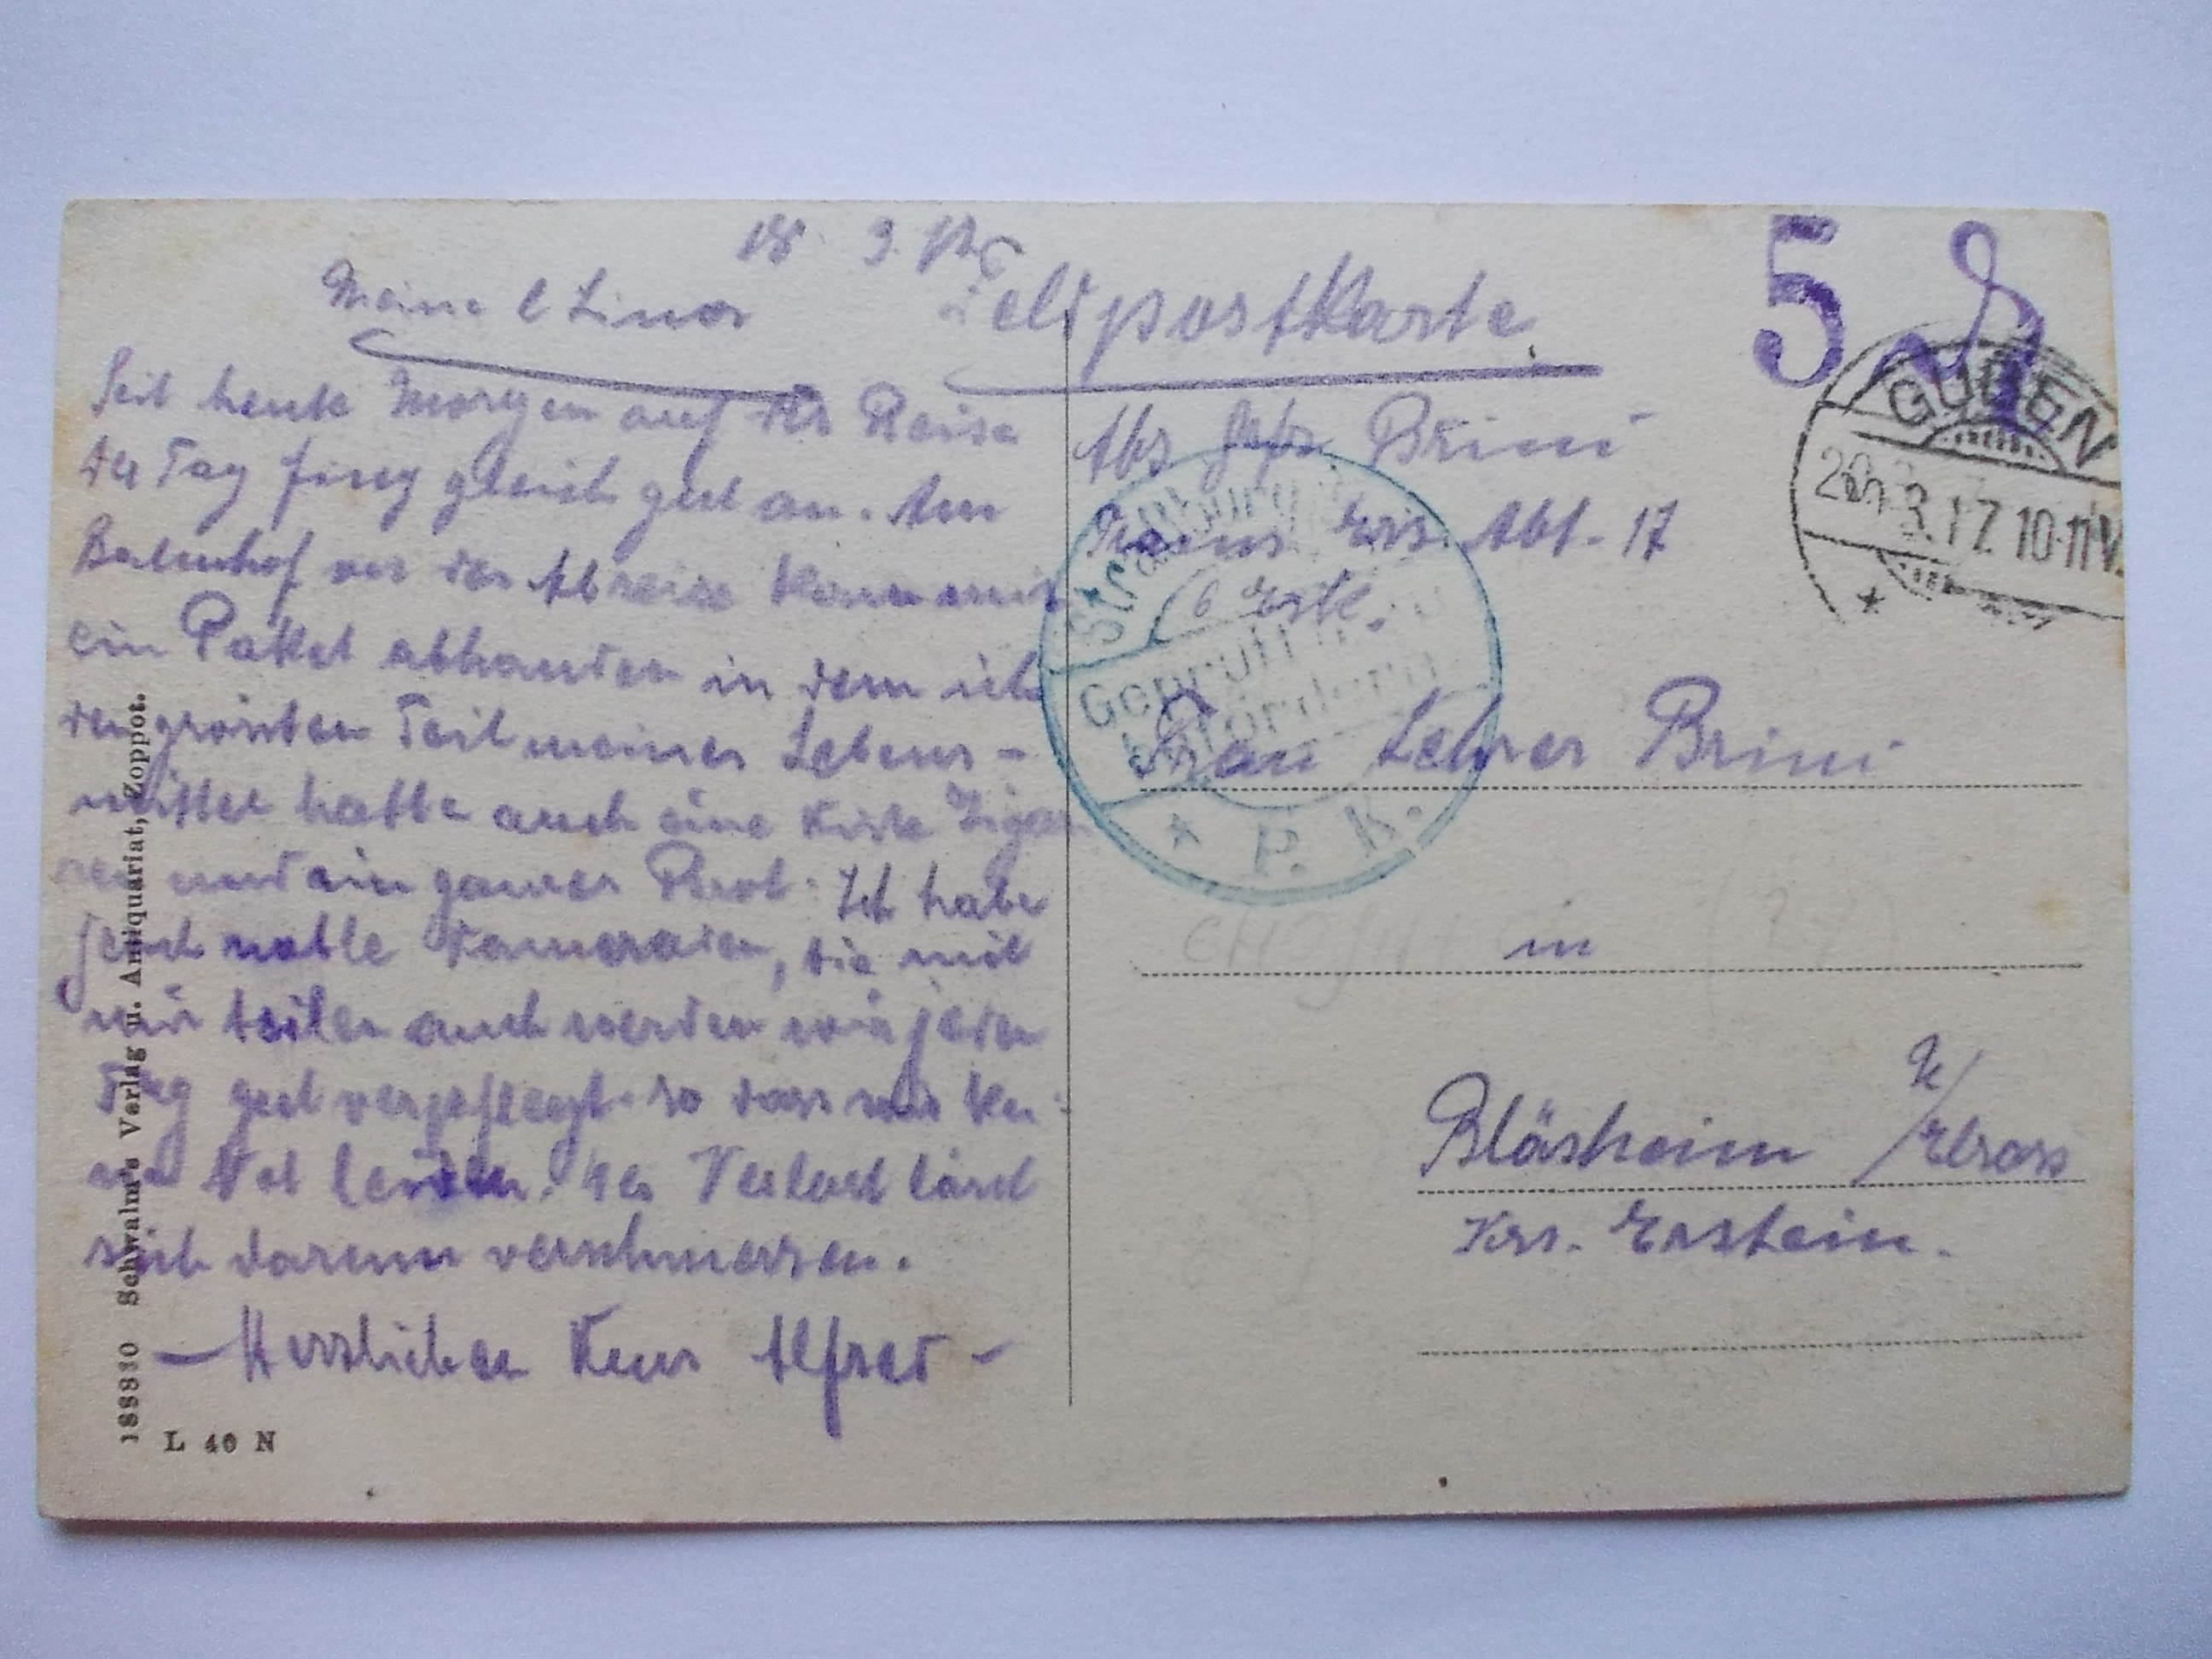 18. 3. 17
Meine l Lina
Seit heute Morgen auf der Reise
der Tag fing gleich gut an. Am
Bahnhof vor der Abreise kam mir
ein Paket abhanden in dem ich
den grössten Teil meiner Lebens-
mittel hatte auch eine Kiste Zigar
ren und ein ganzes Brot. Ich habe
jedoch noble Kameraden, die mit
mir teilen auch werden wir jeden
Tag gut verpflegt so dass wir kei-
ne Not leiden. Der Verlust lässt
sich darum verschmerzen.
- Herzlichen Kuss Alfred -
18880 Schwalm's Verlag u. Antiquariat, Zoppot.
L 40 N
Feldpostkarte
Abs Gefr Brini
Trains Ers. Abt. 17
6 Esk.
Frau Lehrer Brini
in
Bläsheim U/Elsass
Krs. Erstein.
5
GUBEN
3.17.10-11V.
Str
Geprüft
befördern
* P. K.